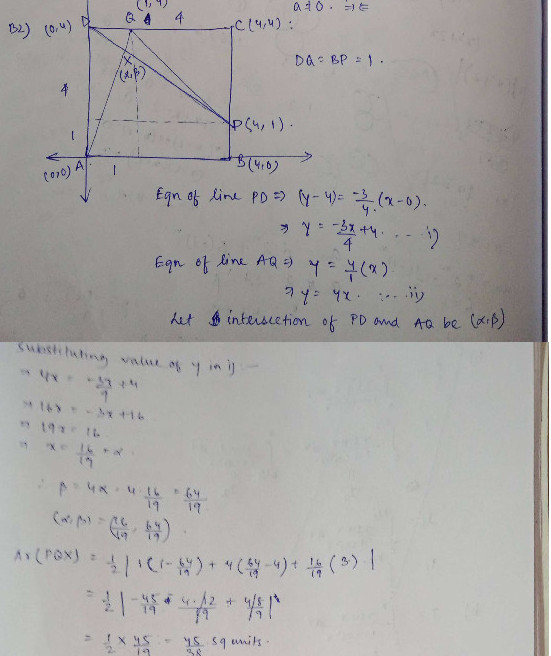 (1,4)
a≠0. ⇒
B2) (0,4) D Q 4 C(4,4):
DQ = BP = 1.
X
(α,β)
4
P(4,1).
1
A B(4,0)
(0,0) 1
Eqn of line PD ⇒ (y-4) = -3/4 (x-0).
⇒ y = -3x/4 + 4 ... i)
Eqn of line AQ ⇒ y = 4/1 (x)
⇒ y = 4x. ... ii)
Let intersection of PD and AQ be (α,β)
substituting value of y in i) :-
⇒ 4x = -3x/4 + 4
⇒ 16x = -3x + 16
⇒ 19x = 16
⇒ x = 16/19 = α
∴ β = 4α = 4·16/19 = 64/19
(α,β) = (16/19, 64/19)
Ar(PQX) = 1/2 | 1(1-64/19) + 4(64/19-4) + 16/19 (3) |
= 1/2 | -45/19 - 4·12/19 + 48/19 |
= 1/2 × 45/19 = 45/38 sq units.